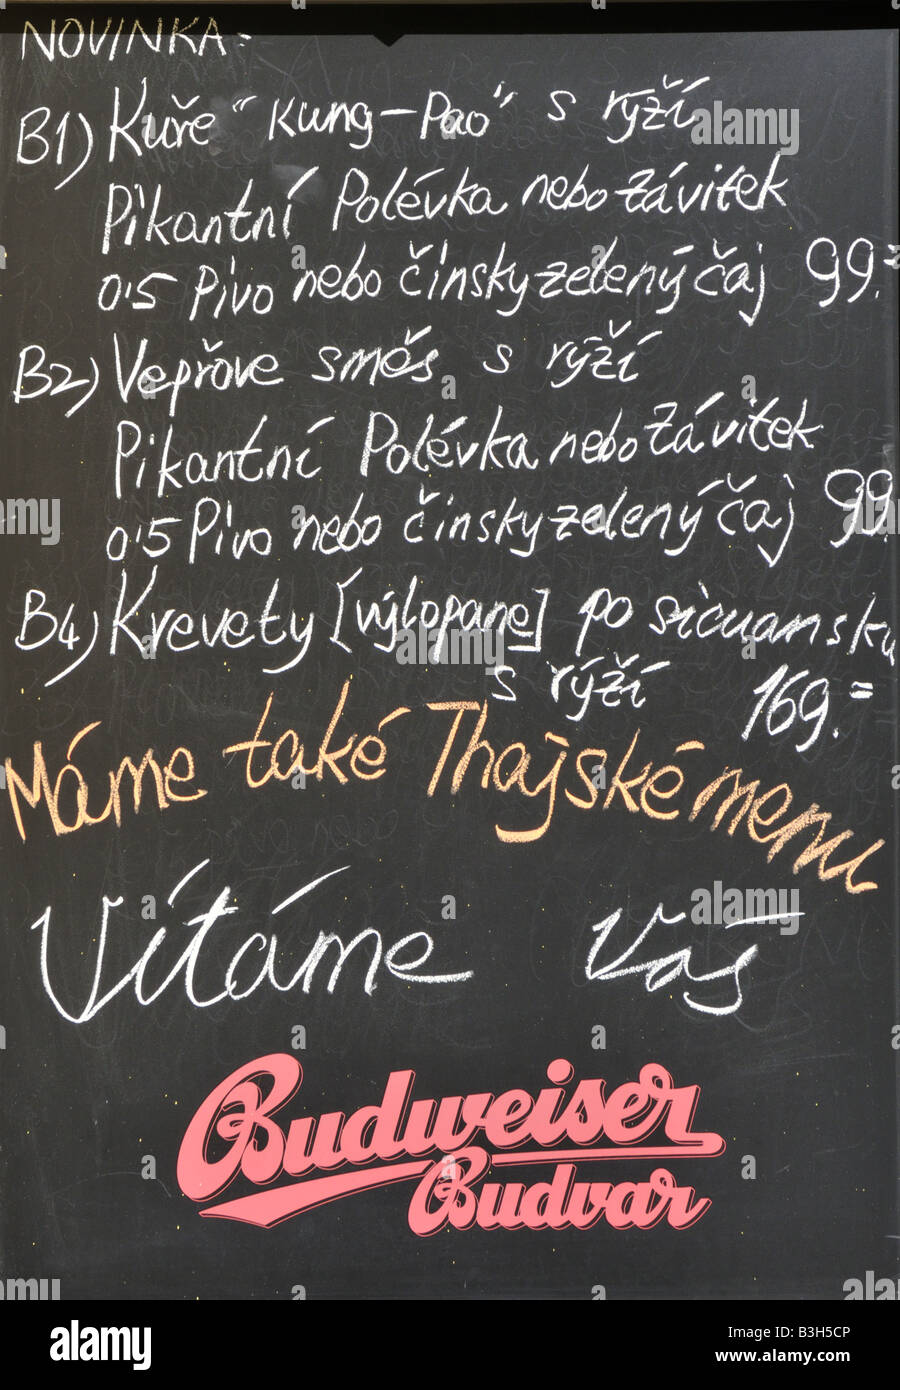 NOVINKA:
B1) Kuře "Kung-Pao" s rýží
Pikantní Polévka nebo závitek
0'5 Pivo nebo čínský zelený čaj 99.=
B2) Vepřove směs s rýží
Pikantní Polévka nebo závitek
0'5 Pivo nebo čínský zelený čaj 99
B4) Krevety [výlopane] po sicuansku
s rýží 169.=
Máme také Thajské menu
Vítáme Vás
Budweiser
Budvar
alamy
Image ID: B3H5CP
www.alamy.com